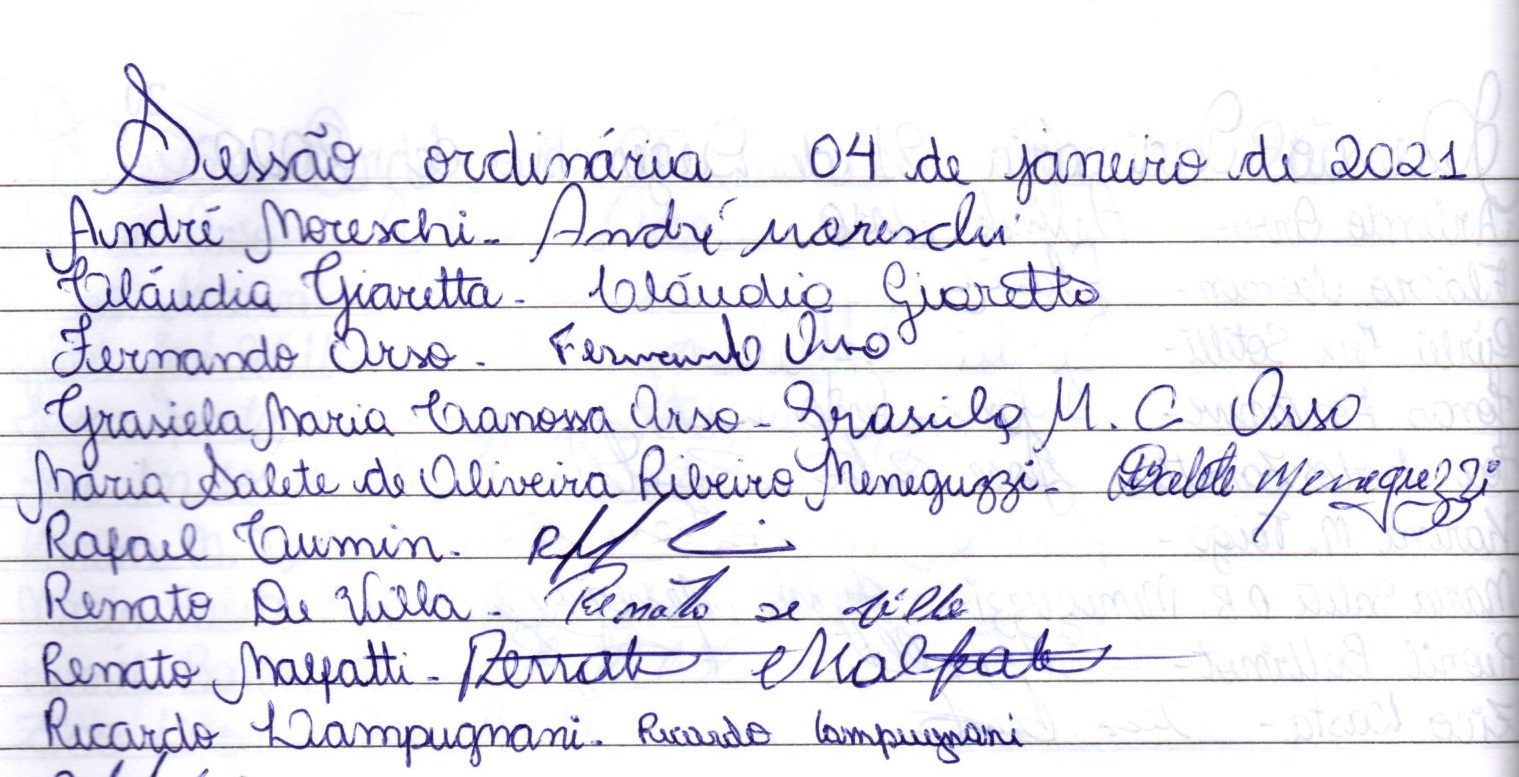 Sessão ordinária 04 de janeiro de 2021
André Moreschi - André Moreschi
Cláudia Giaretta - Cláudia Giaretta
Fernando Orso - Fernando Orso
Grasiela Maria Canossa Orso - Grasiela M. C Orso
Maria Salete de Oliveira Ribeiro Meneguzzi - Salete Meneguzzi
Rafael -
Renato De Villa - Renato de Villa
Renato Malfatti - Renato Malfatti
Ricardo Lampugnani - Ricardo Lampugnani